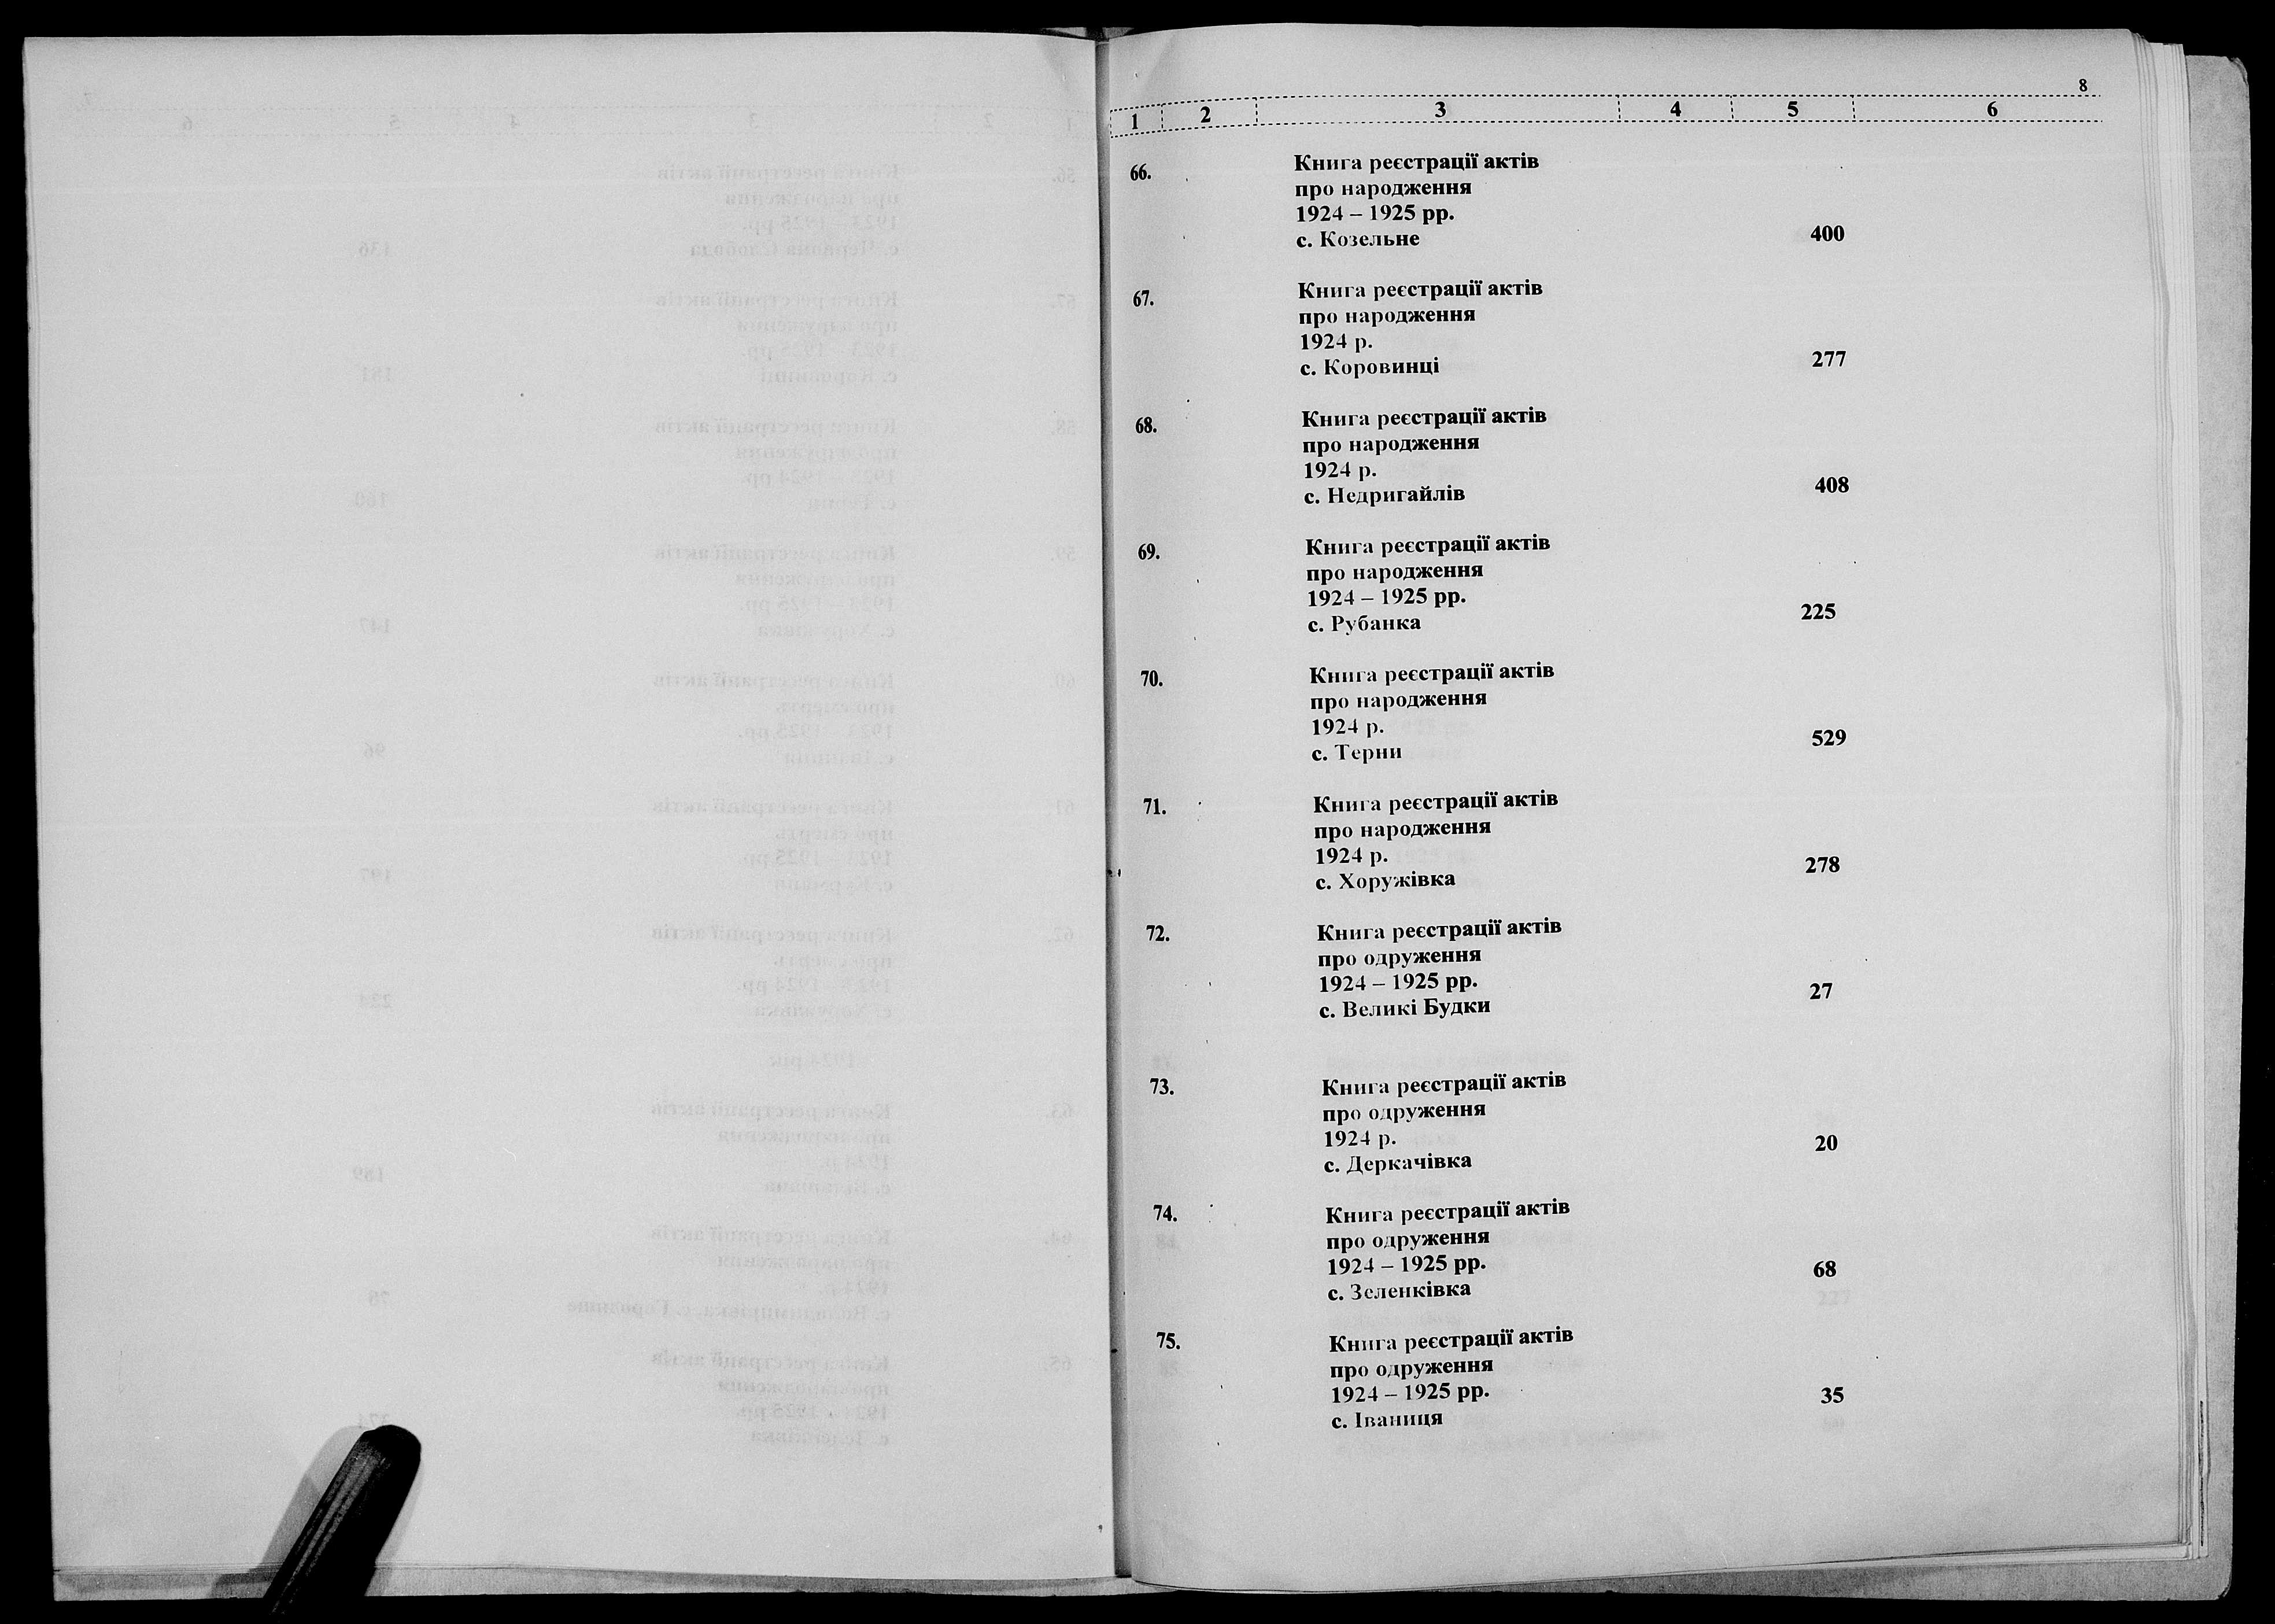 8
1 2 3 4 5 6
66. Книга реєстрації актів
про народження
1924 – 1925 рр.
с. Козельне 400
67. Книга реєстрації актів
про народження
1924 р.
с. Коровинці 277
68. Книга реєстрації актів
про народження
1924 р.
с. Недригайлів 408
69. Книга реєстрації актів
про народження
1924 – 1925 рр.
с. Рубанка 225
70. Книга реєстрації актів
про народження
1924 р.
с. Терни 529
71. Книга реєстрації актів
про народження
1924 р.
с. Хоружівка 278
72. Книга реєстрації актів
про одруження
1924 – 1925 рр.
с. Великі Будки 27
73. Книга реєстрації актів
про одруження
1924 р.
с. Деркачівка 20
74. Книга реєстрації актів
про одруження
1924 – 1925 рр.
с. Зеленківка 68
75. Книга реєстрації актів
про одруження
1924 – 1925 рр.
с. Іваниця 35